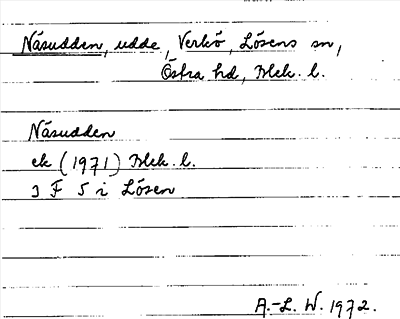 Näsudden, udde, Verkö, Lösens sn,
Östra hd, Blek. l.
Näsudden
ek (1971) Blek. l.
3 F 5 i Lösen
A.-L. W. 1972.